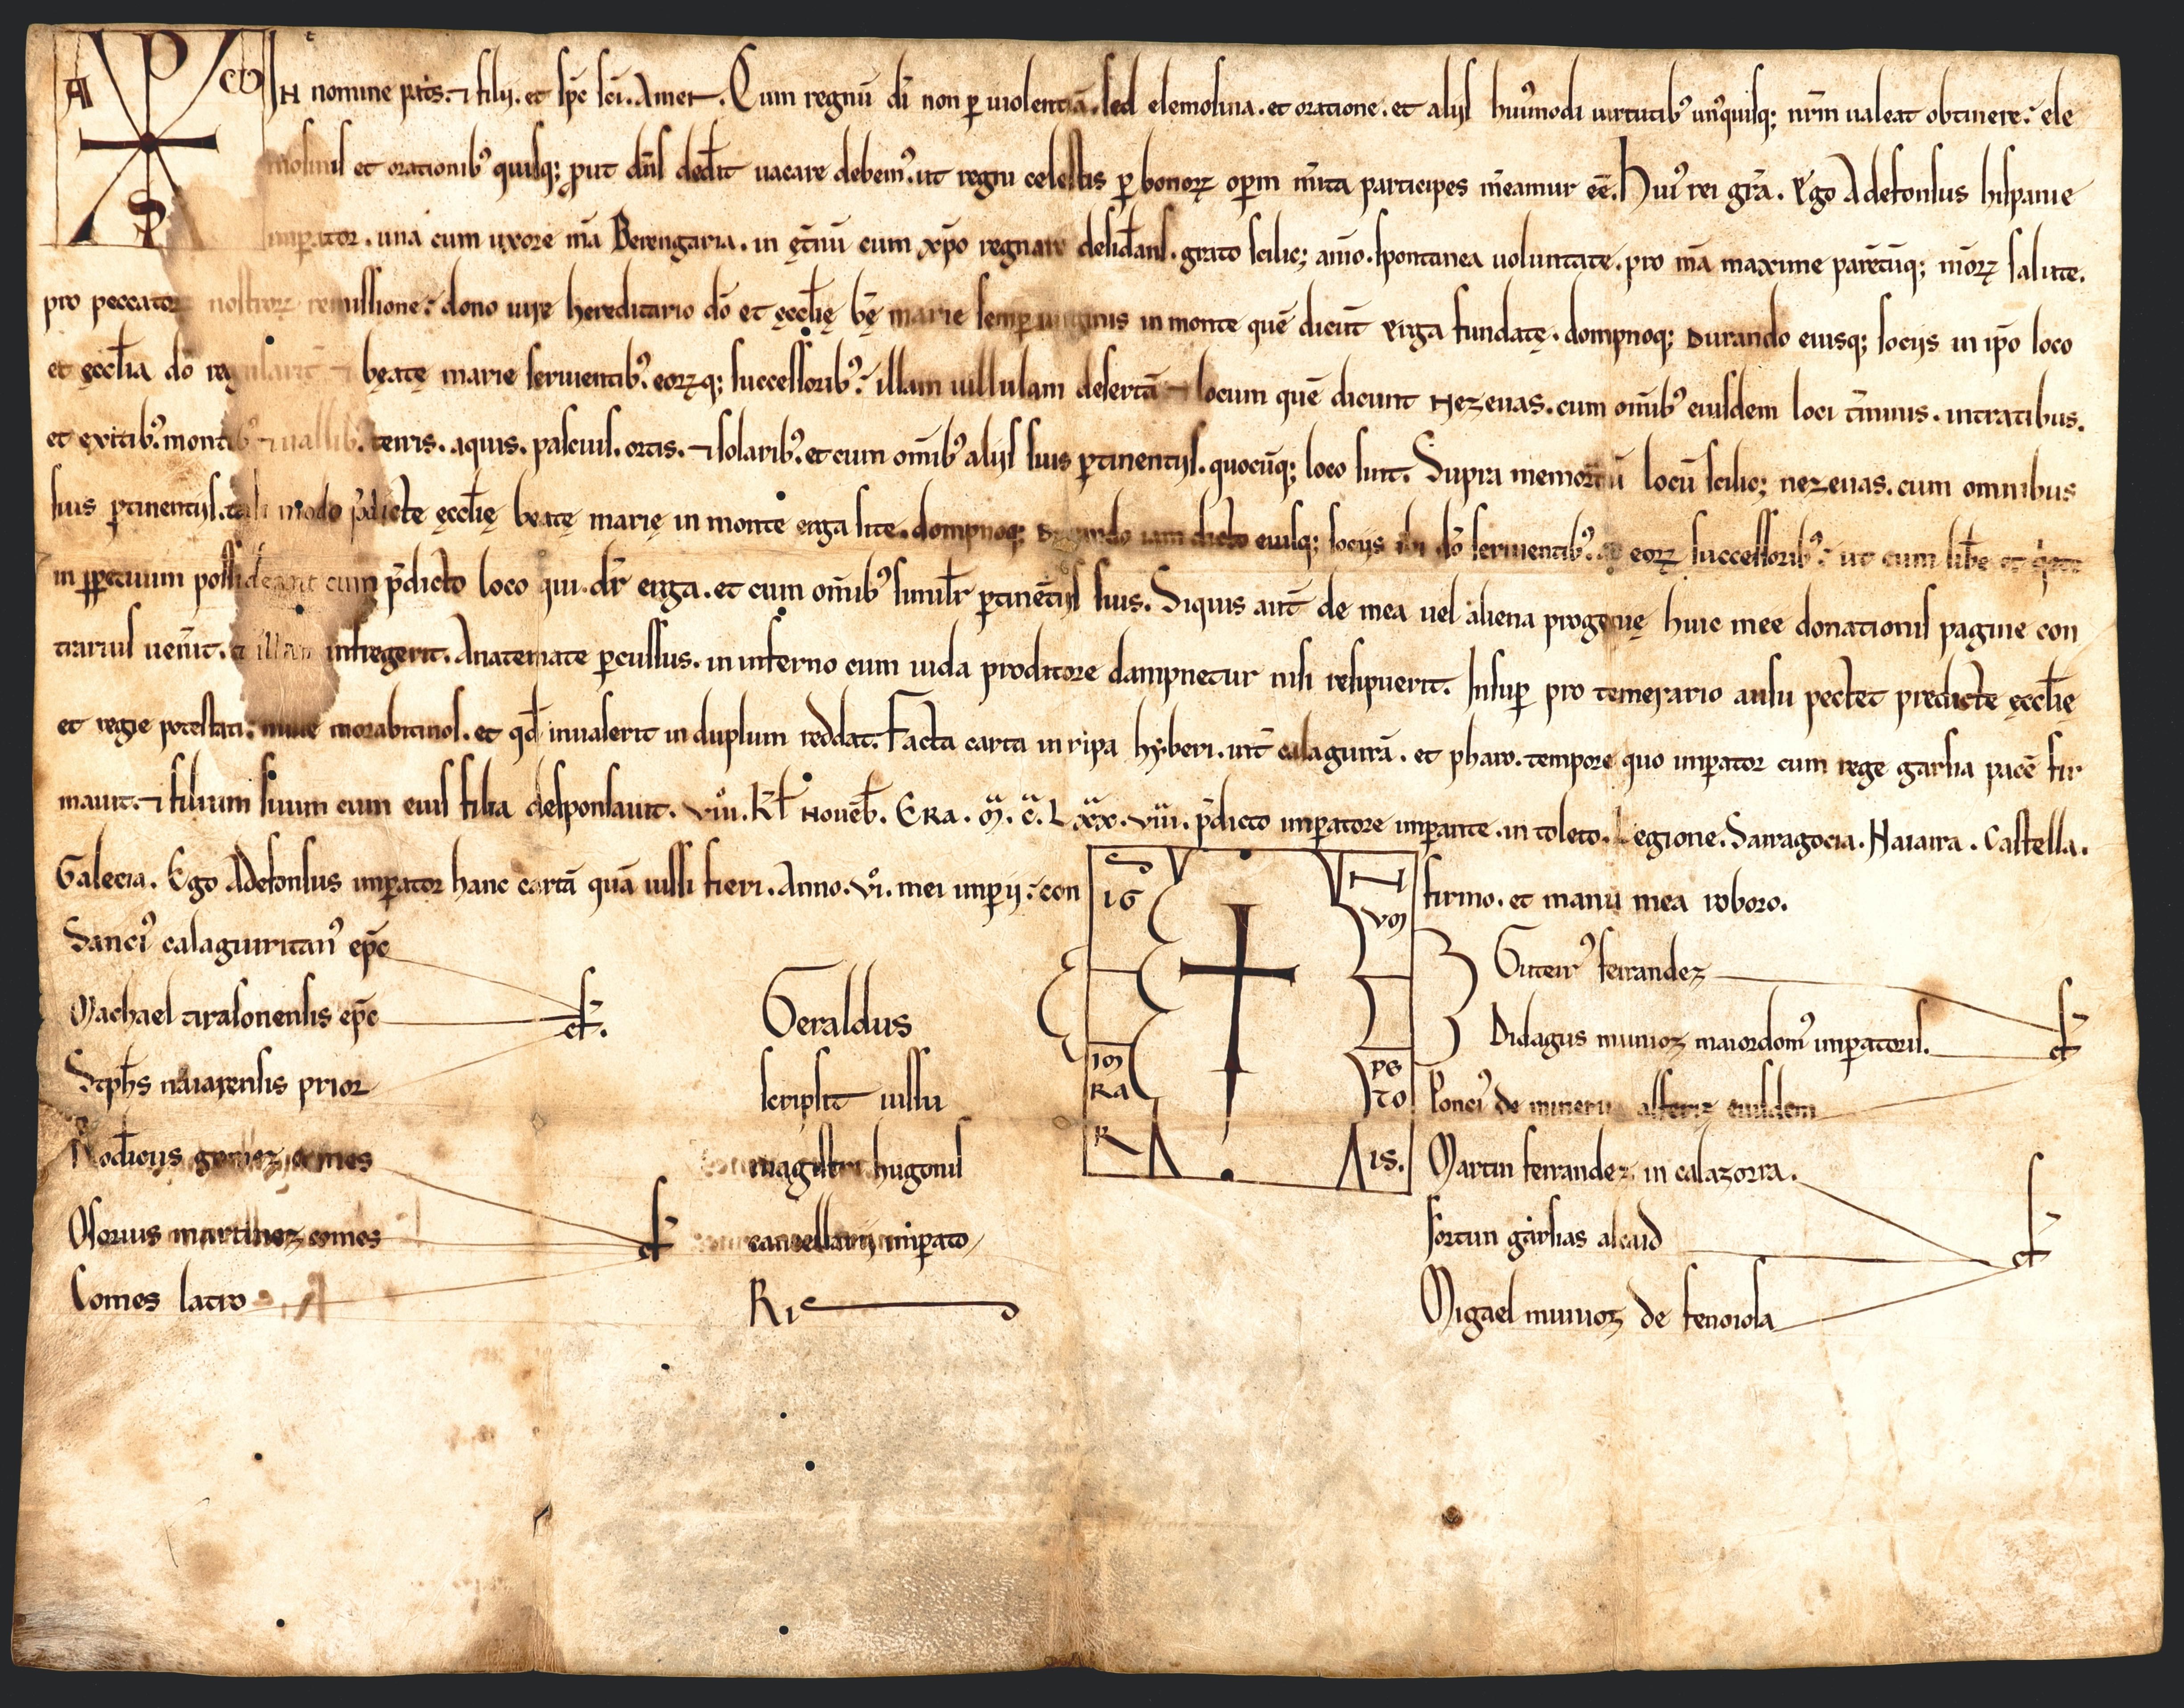 A ω IN nomine pat̄s. ⁊ filii. et sp̄c sc̄i. Amen. Cum regnū dī non ꝑ uiolentiā. sed elemosina. et oratione. et aliis huiꝰmodi uirtutibꝰ unꝰquisq; nr̄m ualeat obtinere: ele
mosinis et orationibꝰ quisq; ꝓut dn̄s ded̄it uacare debemꝰ. ut regni celestis ꝑ bonorꝝ oꝑm m̄ita participes m̄eamur eē. Huiꝰ rei gr̄a. Ego Adefonsus hispanie
imꝑator. una cum uxore m̄a Berengaria. in ęt̄nū cum xp̄o regnare desid̄ans. grato scilic; anīo. spontanea uoluntate. pro m̄a maxime parētūq; m̄orꝝ salute.
pro peccatorꝝ nostrorꝝ remissione: dono iure hereditario dō et ęcclīę bē marie semꝑ uirginis in monte quē dicūt Yrga fundatę. dompnoq; Durando eiusq; sociis in ip̄o loco
et ęcclīa dō regularit̄ ⁊ beatę marie seruientibꝰ. eorꝝq; successoribꝰ: illam uillulam desertā ⁊ locum quē dicunt Nezeuas. cum om̄ibꝰ eiusdem loci t̄minis. intratibus.
et exitibꝰ. montibꝰ ⁊ uallibꝰ. terris. aquis. pascuis. ortis. ⁊ solaribꝰ. et cum om̄ibꝰ aliis suis ꝑtinentiis. quocūq; loco sint. Supra memoratū locū scilic; nezeuas. cum omnibus
suis ꝑtinentiis. tali modo p̄dicte ęcclīę beatę marię in monte erga site. dompnoq; Durando iam dicto eiusq; sociis ibi dō seruientibꝰ. eorꝝ successoribꝰ: ut eum lib̄e et
in ꝑpetuum possideant cum p̄dicto loco qui dr̄ erga. et cum om̄ibꝰ similr̄ ꝑtinētiis suis. Siquis aut̄ de mea uel aliena progenię huic mee donationis pagine con
trarius uen̄it. ⁊ illam infregerit. Anatemate ꝑcussus. in inferno cum iuda proditore dampnetur nisi resipuerit. Insuꝑ pro temerario ausu pectet predicte ęcclīę
et regie potestati: mille morabitinos. et qd̄ inuaserit in duplum reddat. Facta carta in ripa hyberi. int̄ calagurrā. et pharo. tempore quo imꝑator cum rege garsia pacē fir
mauit. ⁊ filium suum cum eius filia desponsauit. VIIIº. Kl̄ Nouēb̄. ERA. M. C. LXX. VIII. p̄dicto imꝑatore imꝑante. in toleto. Legione. Sarragocia. Naiaira. Castella.
Galecia. Ego Adefonsus imꝑator hanc cartā quā iussi fieri. Anno. VIº. mei imꝑii: con firmo. et manu mea roboro.
SIG NVM
IMPERATORIS.
Sanciꝰ calagurritanꝰ ep̄c cf.
Michael tirasonensis ep̄c
Stph̄s naiarensis prior
Rod̄icus gomez comes cf
Osorius martinez comes
Comes latro
Geraldus
scripsit iussu
magistri hugonis
cancellarii imꝑato
RIS
Guteirꝰ ferrandez cf
Didagus munioz maiordomꝰ imꝑatoris.
Poncꝰ de minerua alferiz eiusdem
Martin ferrandez in calazorra. cf
Fortun garsias alcaid
Migael munioz de fenoiola